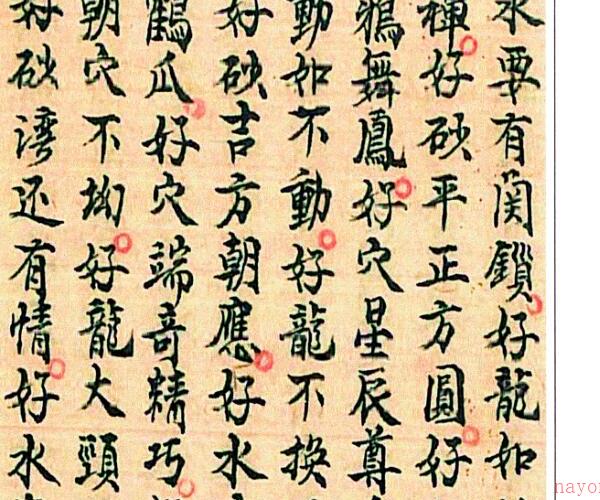 水要有関鎖好龍如
好砂平正方圓好
鴉舞鳳好穴星辰尊
動如不動好龍不換
好砂吉方朝應好水
鶴瓜好穴端奇精巧
朝穴不坳好龍大頸
好砂湾还有情好水
nayo